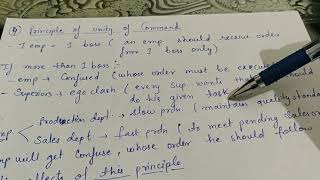 ④ Principle of unity of Command
- 1 emp - 1 boss ( an emp should receive order
from 1 boss only)
If more than 1 boss :-
emp → Confused (whose order must be executed
- Superior → ego clash ( every sup. wants that should
do his given task
Production dept → slow prdn ( maintain quality standard
emp
Sales dept → fast prdn ( to meet pending sales
emp will get confuse, whose order he should follow
effects of this principle